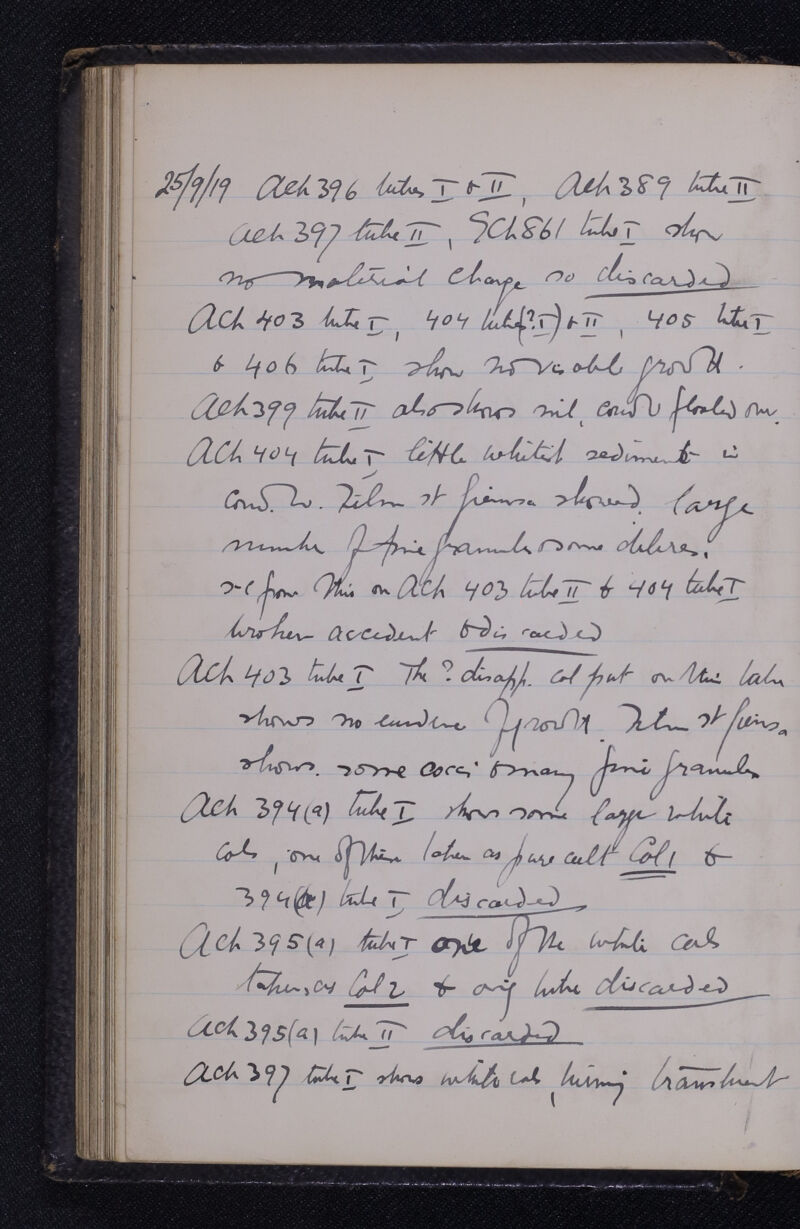 25/9/19 Ach 396 tubes I & II, Ach 389 tube II
Ach 397 tube II, SCh 861 tube I show
no material change so discarded
Ach 403 tube I, 404 tube (? I) & II, 405 tube I
& 406 tube I show no visable growth.
Ach 399 tube II also shows nil, cond W floated over.
Ach 404 tube I little whitish sediment in
cond. W. Film st Giemsa showed large
number of fine granules & some debres.
s-c from this on Ach 403 tube II & 404 tube I
broken accident & discarded
Ach 403 tube I The ? disapp. col put on this tube
shows no evidence of growth. Film st Giemsa
shows. some cocci & many fine granules
Ach 394(a) tube I shows some large white
cols, one of them taken as pure cult Col 1 &
394() tube I discarded
Ach 395(a) tube I one of the white cols
taken as Col 2 & orig tube discarded
Ach 395(a) tube II discarded
Ach 397 tube I shows white cols, turning